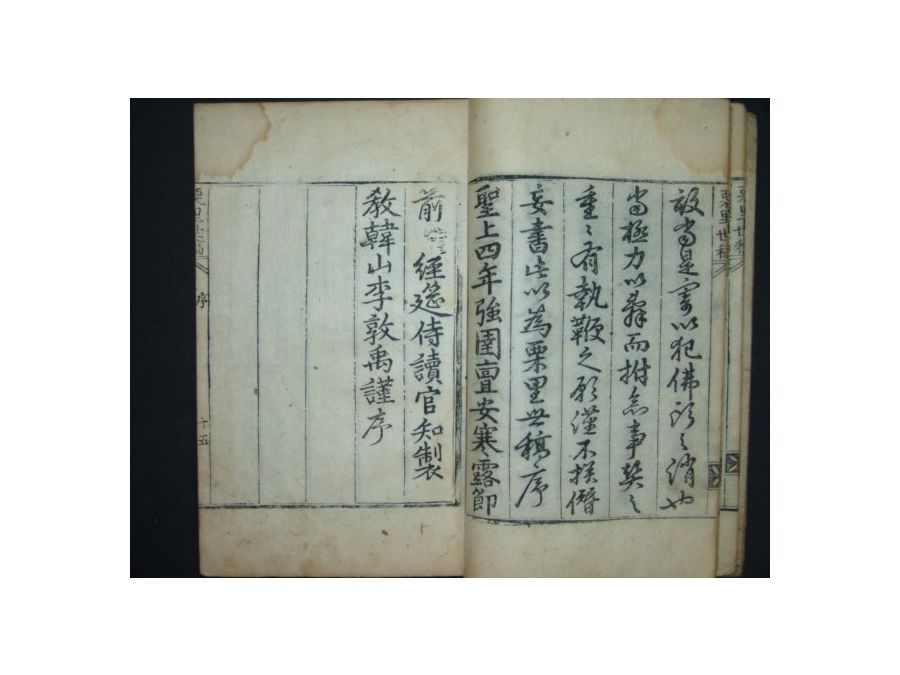 栗里世稿
敢当是寄以犯佛頭之誚也
当極力以辞而拊念事契之
重〻有執鞭之願謹不揆僭
妄書此以為栗里世稿序
聖上四年強圉亶安寒露節
前 經筵侍讀官知製
教韓山李敦禹謹序
栗里世稿
序
十五